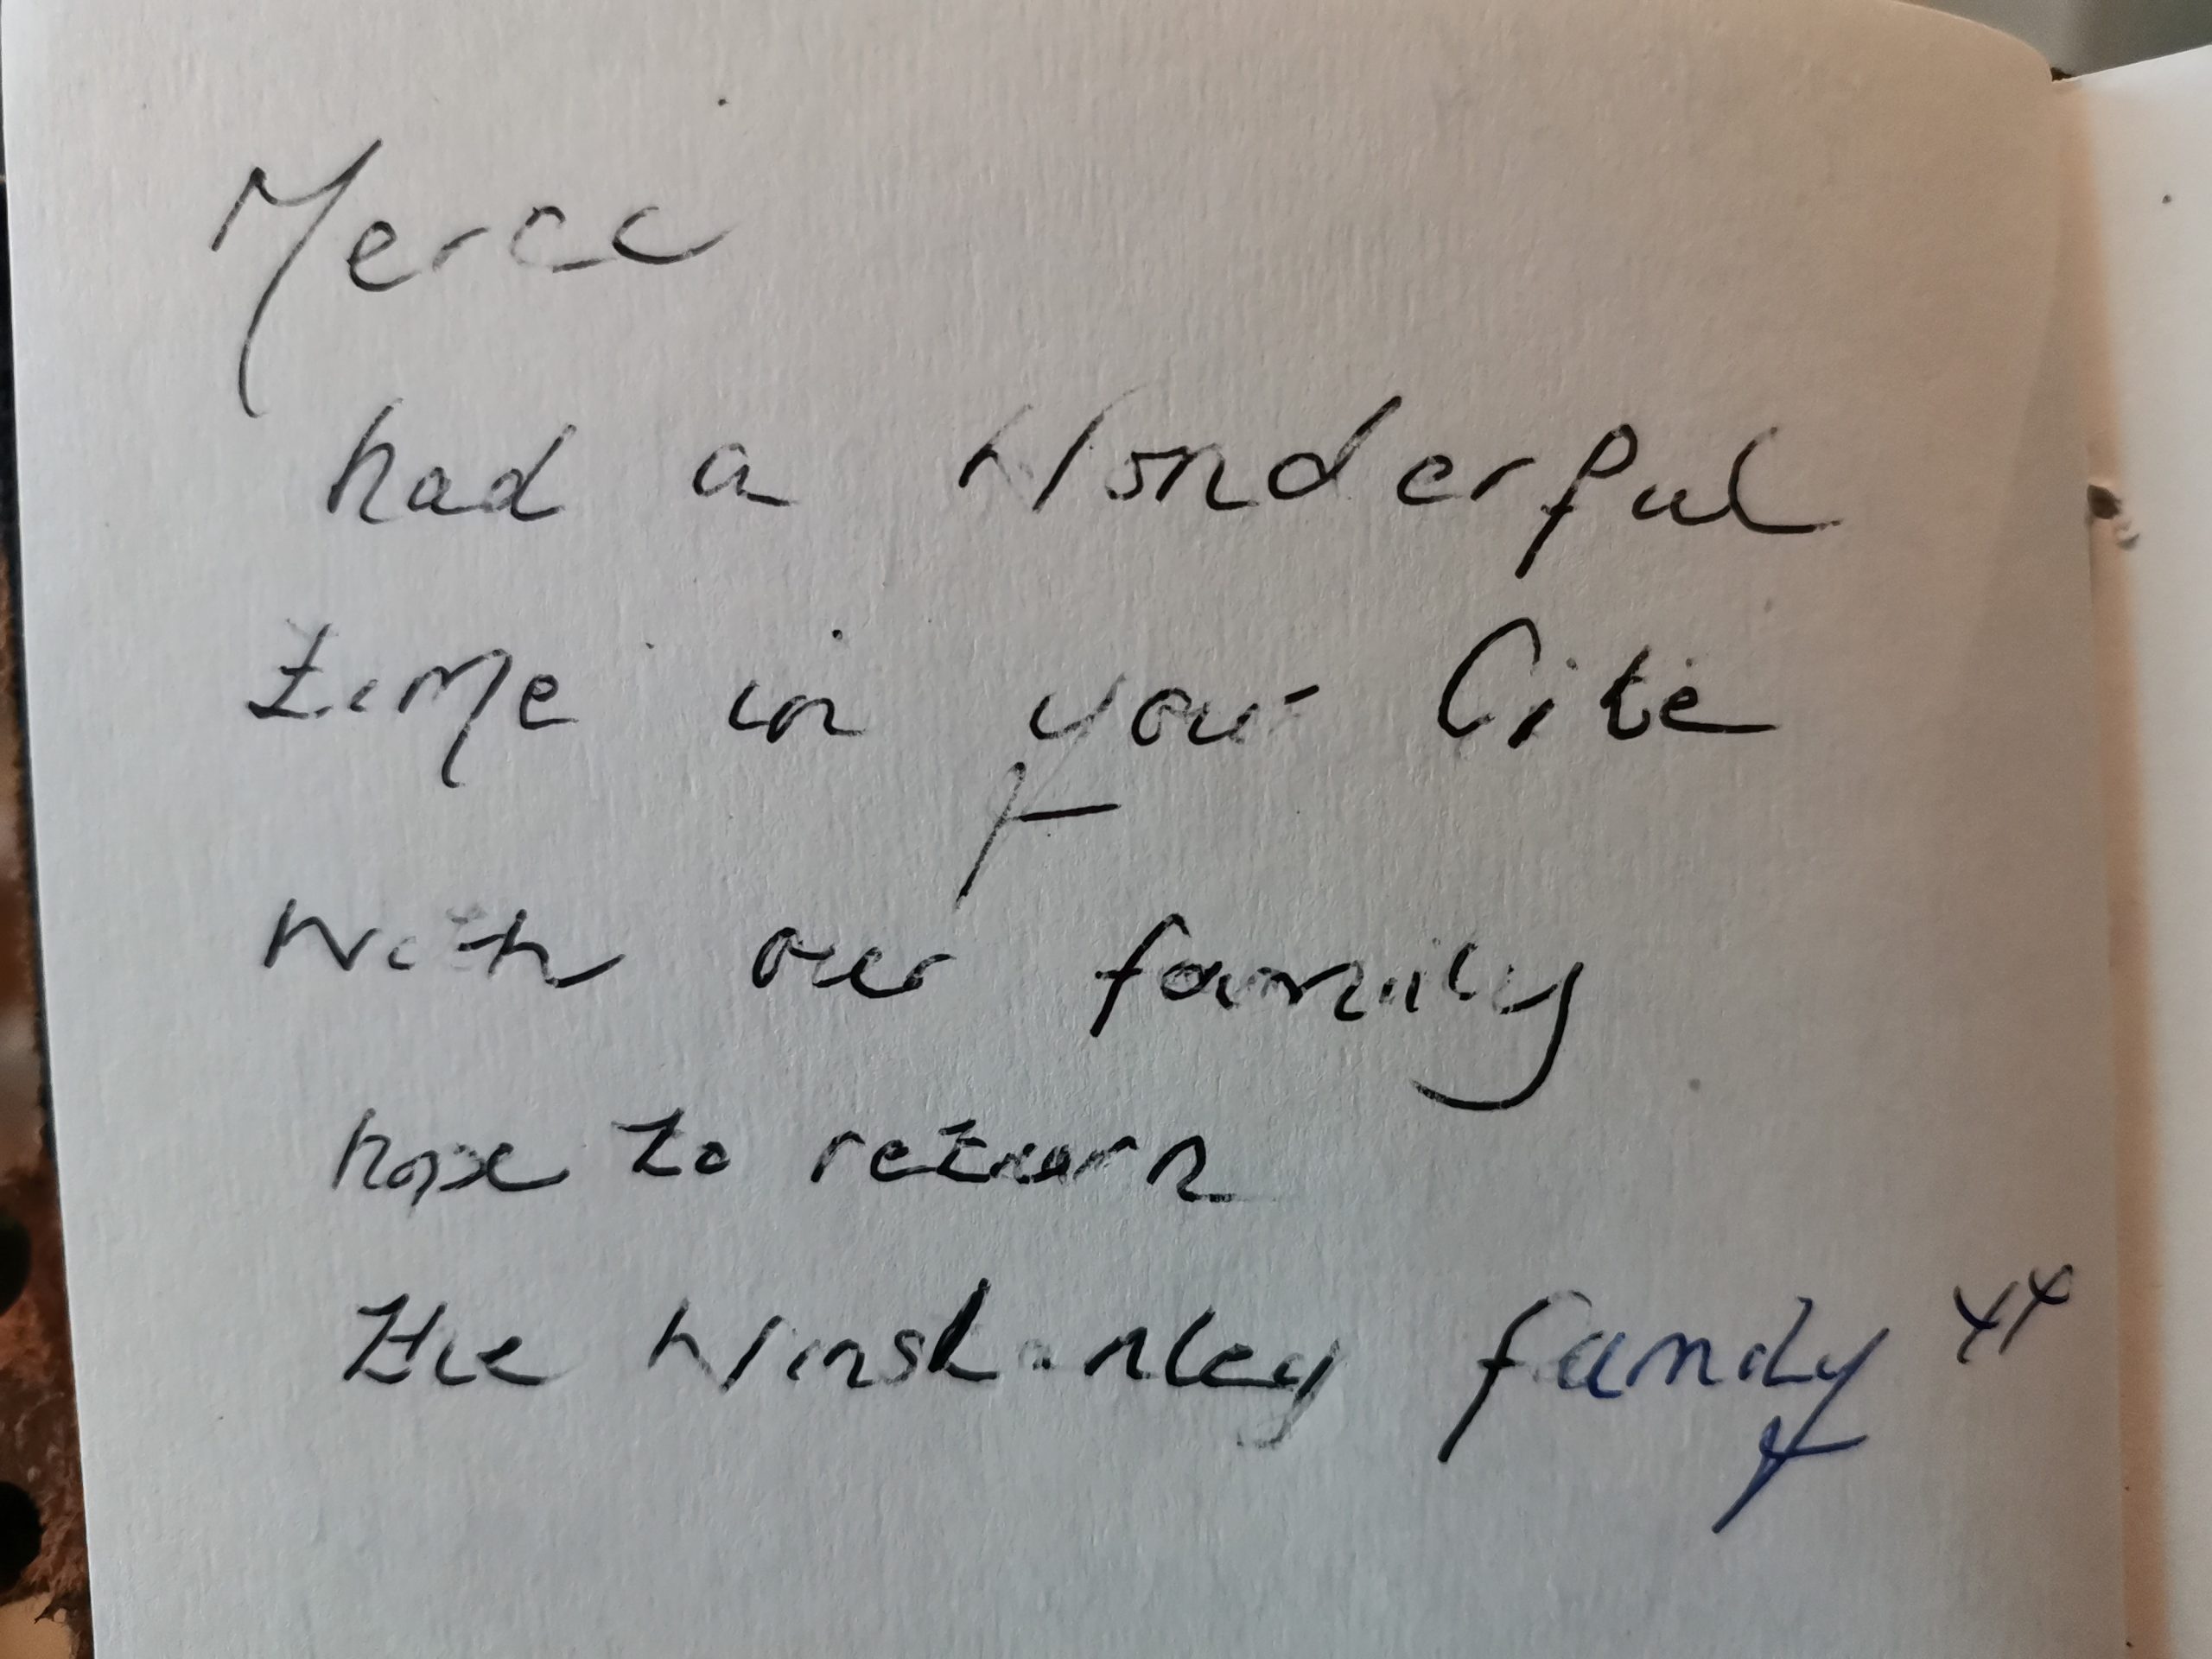 Merci
had a Wonderful
time in your Cite
With our family
hope to return
the Winstanley family xx